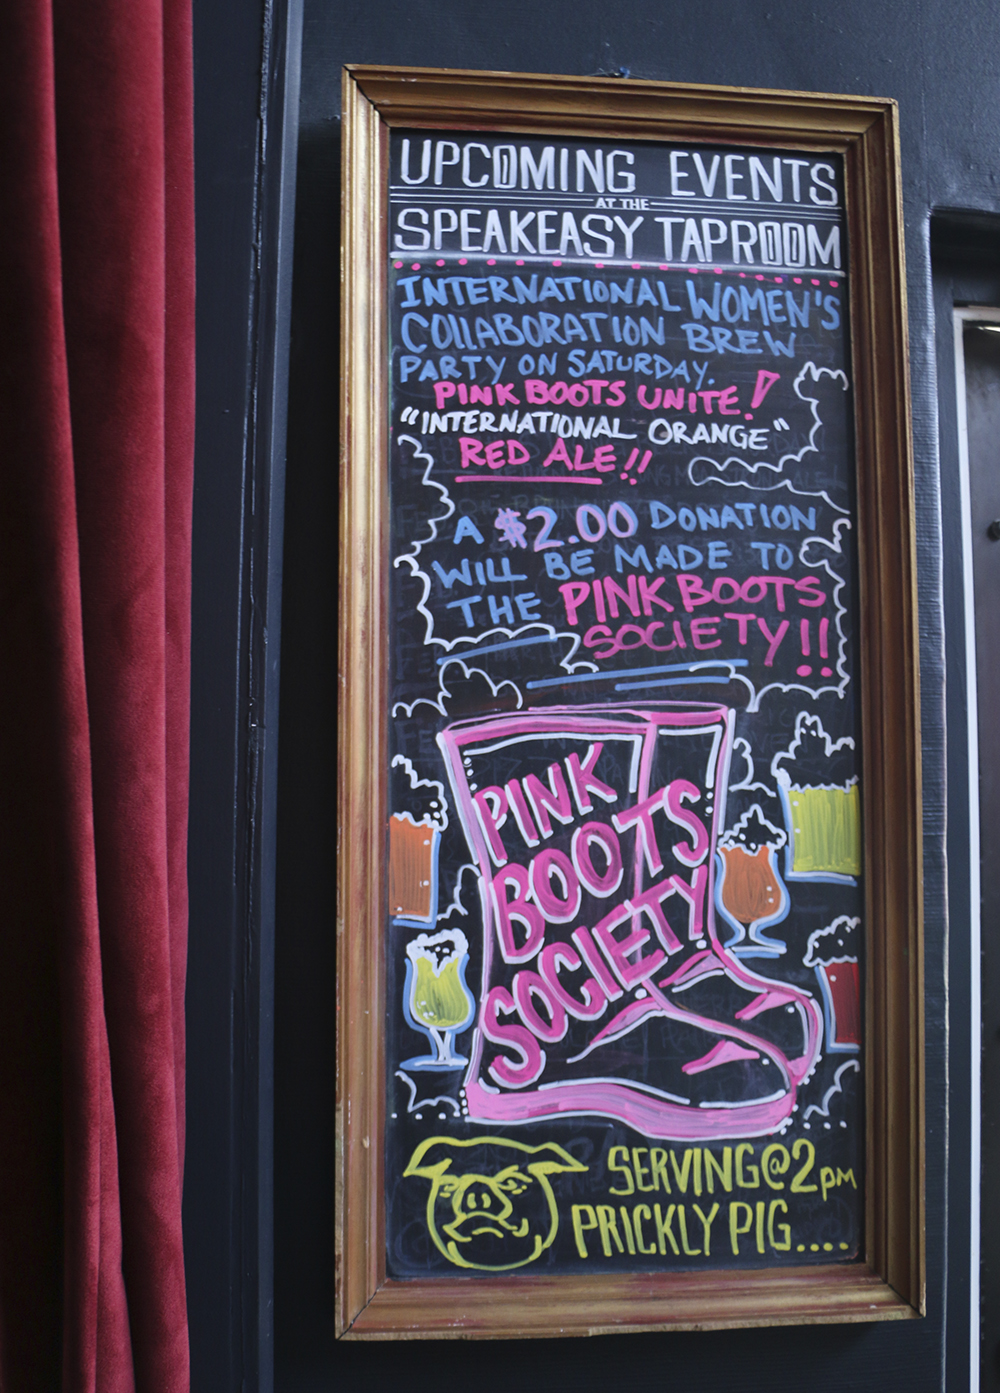 UPCOMING EVENTS
AT THE
SPEAKEASY TAPROOM
INTERNATIONAL WOMEN'S
COLLABORATION BREW
PARTY ON SATURDAY.
PINK BOOTS UNITE!
"INTERNATIONAL ORANGE"
RED ALE!!
A $2.00 DONATION
WILL BE MADE TO
THE PINK BOOTS
SOCIETY!!
PINK
BOOTS
SOCIETY
SERVING@2pm
PRICKLY PIG....